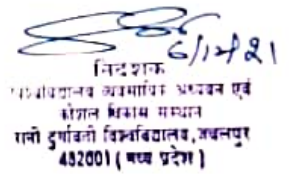 6/12/21
निदेशक
विश्वविद्यालय व्यवसायिक अध्ययन एवं
कौशल विकास संस्थान
रानी दुर्गावती विश्वविद्यालय, जबलपुर
482001 ( मध्य प्रदेश )